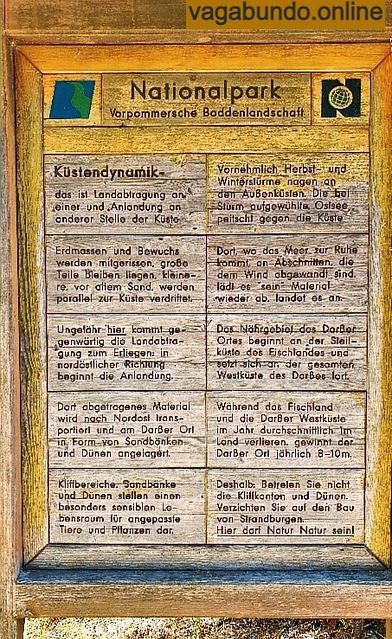 vagabundo.online
Nationalpark
Vorpommersche Boddenlandschaft
N
Küstendynamik-
das ist Landabtragung an
einer und Anlandung an
anderer Stelle der Küste
Vornehmlich Herbst- und
Winterstürme nagen an
den Außenküsten. Die bei
Sturm aufgewühlte Ostsee
peitscht gegen die Küste
Erdmassen und Bewuchs
werden mitgerissen, große
Teile bleiben liegen, kleine-
re, vor allem Sand, werden
parallel zur Küste verdriftet.
Dort, wo das Meer zur Ruhe
kommt, an Abschnitten, die
dem Wind abgewandt sind,
lädt es "sein" Material
wieder ab, landet es an.
Ungefähr hier kommt ge-
genwärtig die Landabtra-
gung zum Erliegen, in
nordöstlicher Richtung
beginnt die Anlandung.
Das Nährgebiet des Darßer
Ortes beginnt an der Steil-
küste des Fischlandes und
setzt sich an der gesamten
Westküste des Darßes fort.
Dort abgetragenes Material
wird nach Nordost trans-
portiert und am Darßer Ort
in Form von Sandbänken
und Dünen angelagert.
Während das Fischland
und die Darßer Westküste
im Jahr durchschnittlich 1m
Land verlieren, gewinnt der
Darßer Ort jährlich 8-10m.
Kliffbereiche, Sandbänke
und Dünen stellen einen
besonders sensiblen Le-
bensraum für angepasste
Tiere und Pflanzen dar.
Deshalb: Betreten Sie nicht
die Kliffkanten und Dünen.
Verzichten Sie auf den Bau
von Strandburgen.
Hier darf Natur Natur sein!